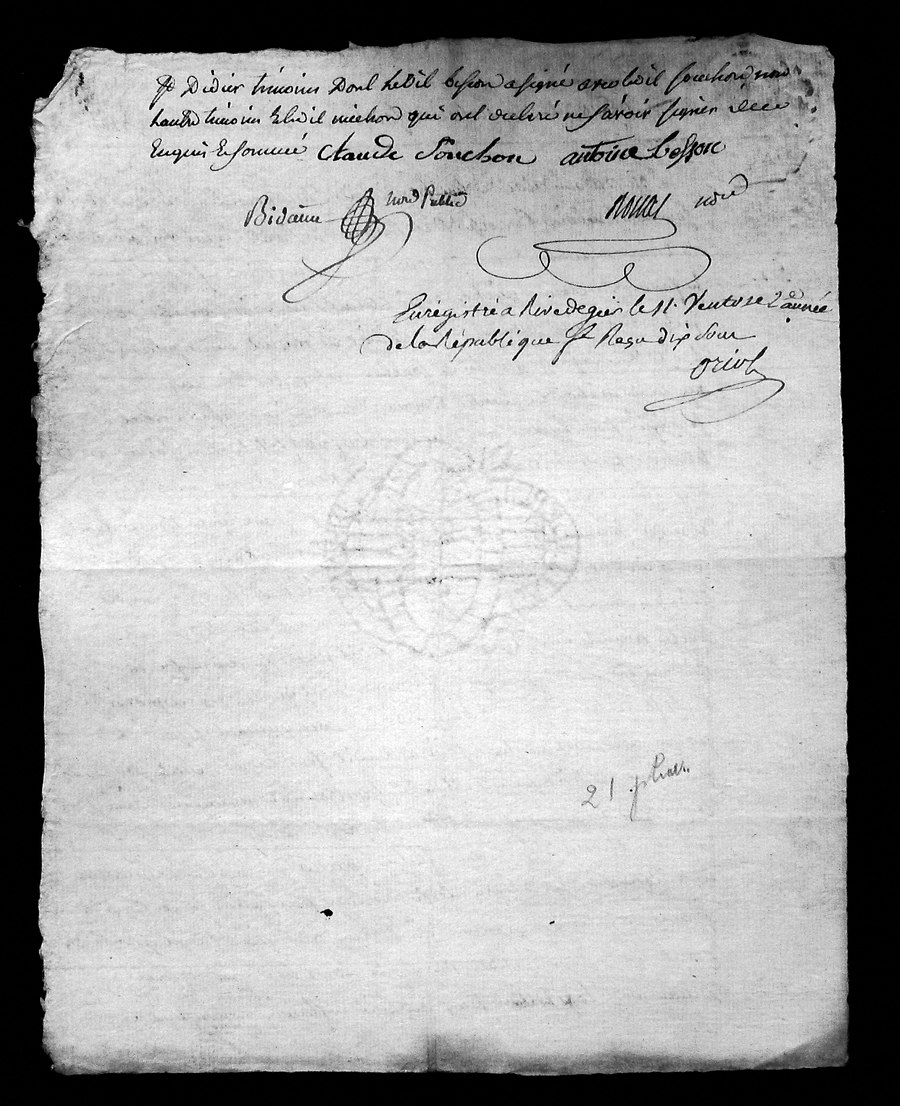 St Didier temoins dont ledit besson a signé avec ledit souchon non
lautre temoins et ledit michon qui ont declaré ne savoir signer de ce
Enquis Et sommé Claude Souchon antoine besson
Bidaure nore Public nore
Enrégistré a Rivedegier le 11. Ventose 2e année
de la République Reçu dix sour
oriol
21